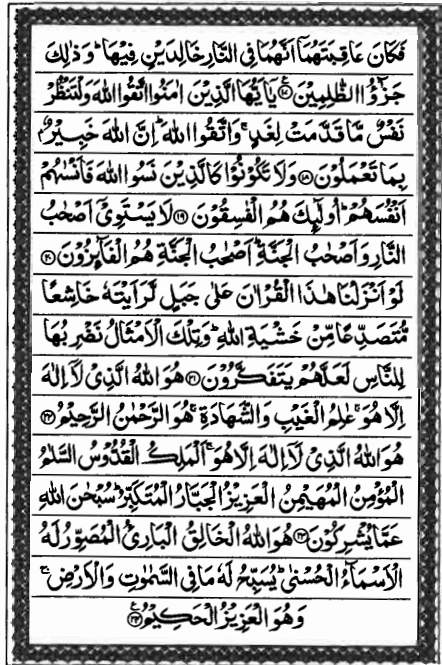 فَكَانَ عَاقِبَتَهُمَآ اَنَّهُمَا فِی النَّارِ خَالِدَیْنِ فِیْهَا ؕ وَذٰلِكَ
جَزٰٓؤُا الظّٰلِمِیْنَ ﴿۱۷﴾ یٰۤاَیُّهَا الَّذِیْنَ اٰمَنُوا اتَّقُوا اللّٰهَ وَلْتَنْظُرْ
نَفْسٌ مَّا قَدَّمَتْ لِغَدٍ ۚ وَاتَّقُوا اللّٰهَ ؕ اِنَّ اللّٰهَ خَبِیْرٌۢ
بِمَا تَعْمَلُوْنَ ﴿۱۸﴾ وَلَا تَكُوْنُوْا كَالَّذِیْنَ نَسُوا اللّٰهَ فَاَنْسٰىهُمْ
اَنْفُسَهُمْ ؕ اُولٰٓئِكَ هُمُ الْفٰسِقُوْنَ ﴿۱۹﴾ لَا یَسْتَوِیْۤ اَصْحٰبُ
النَّارِ وَاَصْحٰبُ الْجَنَّةِ ؕ اَصْحٰبُ الْجَنَّةِ هُمُ الْفَآئِزُوْنَ ﴿۲۰﴾
لَوْ اَنْزَلْنَا هٰذَا الْقُرْاٰنَ عَلٰی جَبَلٍ لَّرَاَیْتَهٗ خَاشِعًا
مُّتَصَدِّعًا مِّنْ خَشْیَةِ اللّٰهِ ؕ وَتِلْكَ الْاَمْثَالُ نَضْرِبُهَا
لِلنَّاسِ لَعَلَّهُمْ یَتَفَكَّرُوْنَ ﴿۲۱﴾ هُوَ اللّٰهُ الَّذِیْ لَاۤ اِلٰهَ
اِلَّا هُوَ ۚ عٰلِمُ الْغَیْبِ وَالشَّهَادَةِ ۚ هُوَ الرَّحْمٰنُ الرَّحِیْمُ ﴿۲۲﴾
هُوَ اللّٰهُ الَّذِیْ لَاۤ اِلٰهَ اِلَّا هُوَ ۚ اَلْمَلِكُ الْقُدُّوْسُ السَّلٰمُ
الْمُؤْمِنُ الْمُهَیْمِنُ الْعَزِیْزُ الْجَبَّارُ الْمُتَكَبِّرُ ؕ سُبْحٰنَ اللّٰهِ
عَمَّا یُشْرِكُوْنَ ﴿۲۳﴾ هُوَ اللّٰهُ الْخَالِقُ الْبَارِئُ الْمُصَوِّرُ لَهُ
الْاَسْمَآءُ الْحُسْنٰی ؕ یُسَبِّحُ لَهٗ مَا فِی السَّمٰوٰتِ وَالْاَرْضِ ۚ
وَهُوَ الْعَزِیْزُ الْحَكِیْمُ ﴿۲۴﴾